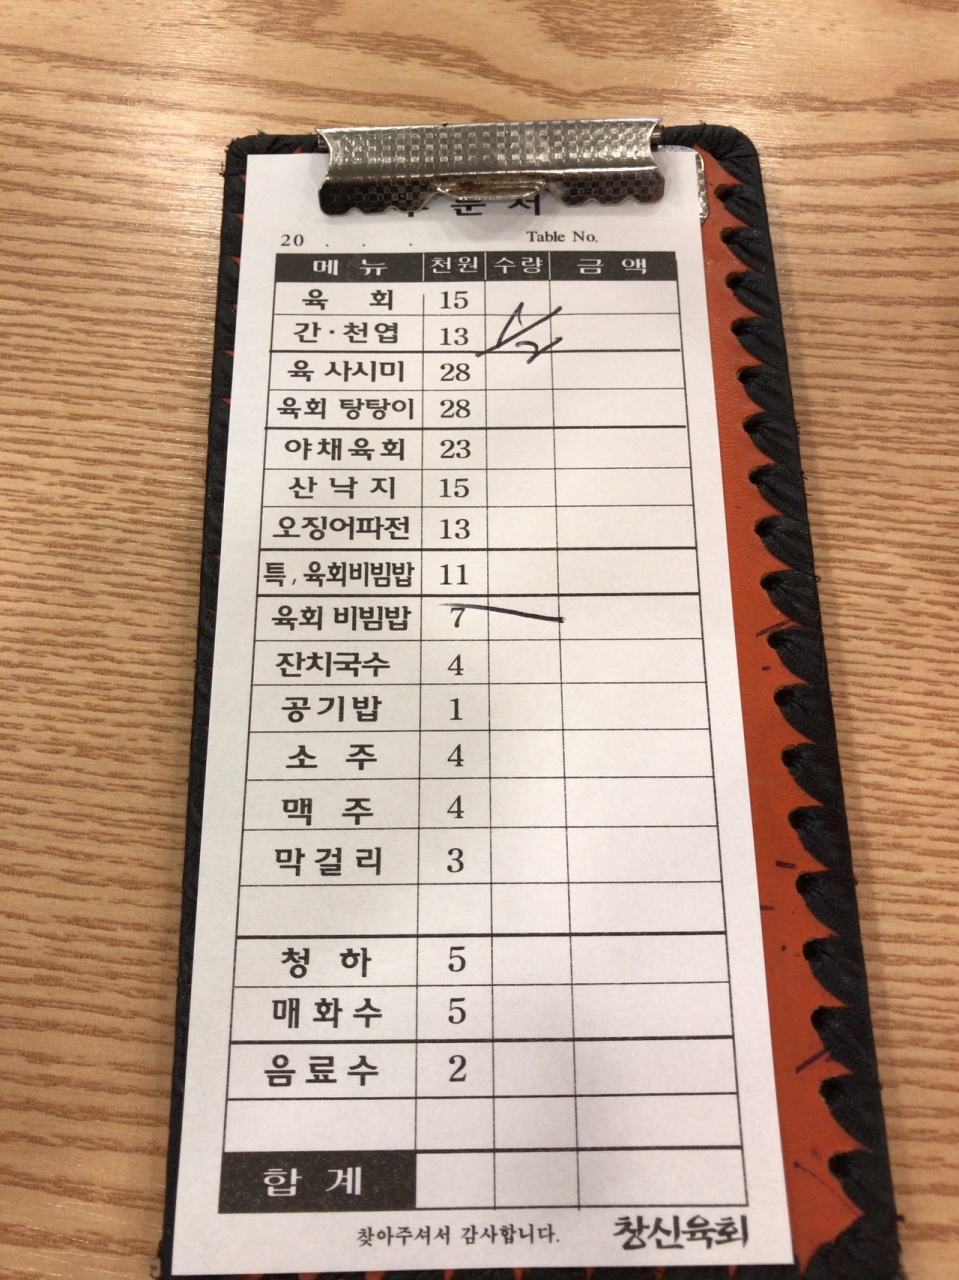 주문서
20 . . . Table No.
메 뉴 천원 수량 금 액
육 회 15
간·천엽 13
육 사시미 28
육회 탕탕이 28
야채육회 23
산 낙 지 15
오징어파전 13
특, 육회비빔밥 11
육회 비빔밥 7
잔치국수 4
공기밥 1
소 주 4
맥 주 4
막걸리 3
청 하 5
매화수 5
음료수 2
합 계
찾아주셔서 감사합니다. 창신육회